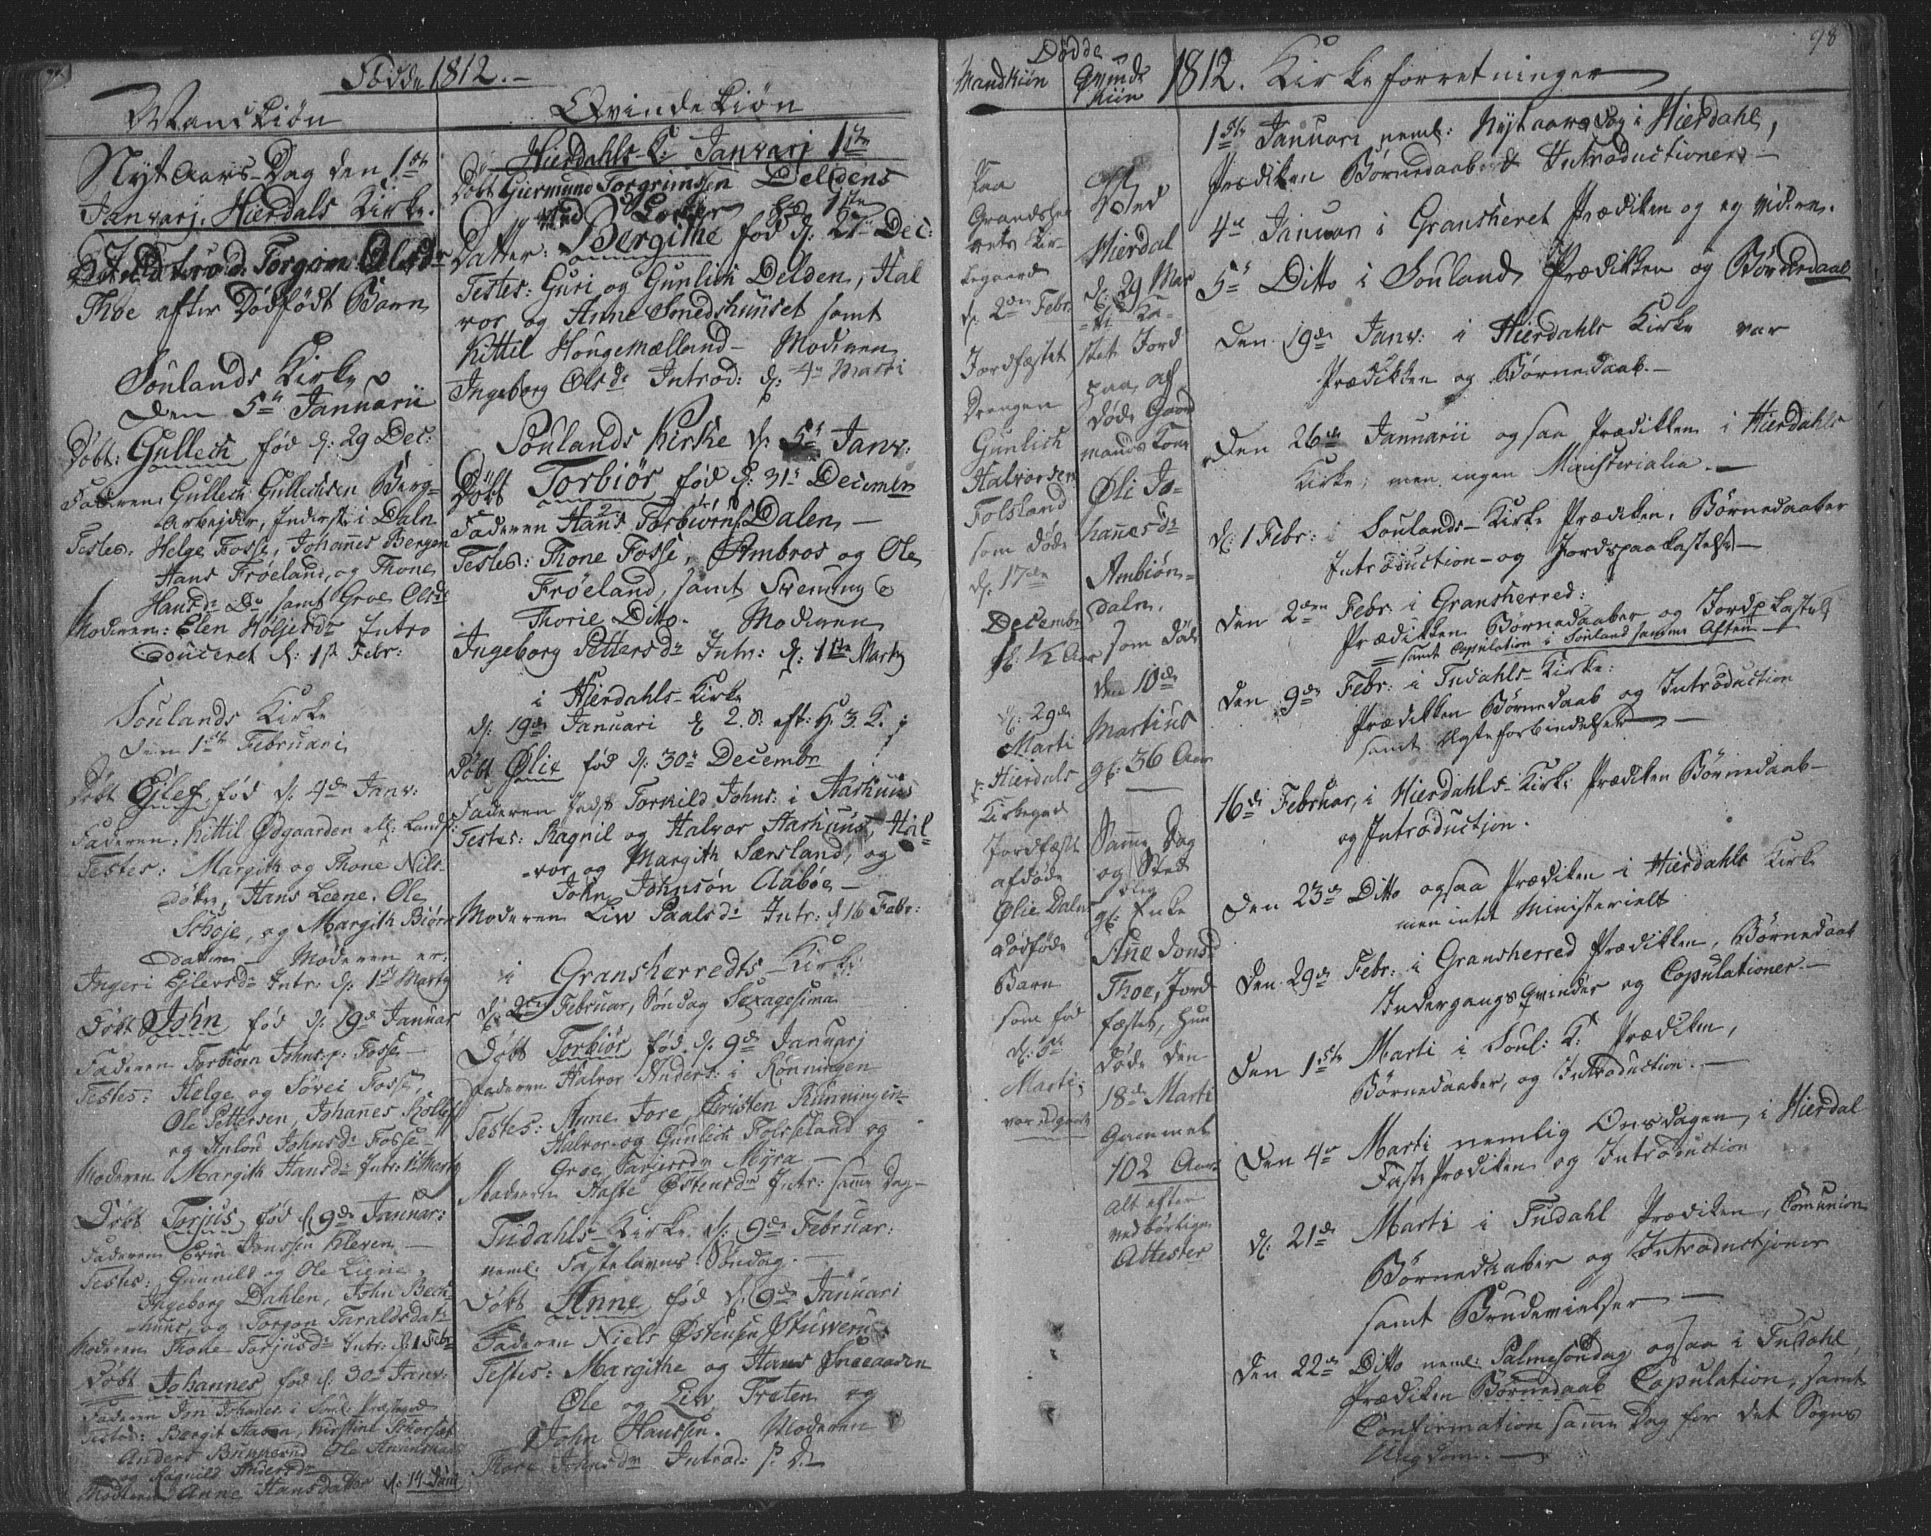 Fødde 1812.
Mandkiøn
Nyt Aars-Dag den 1ste
Januarj, Hierdals Kirke.
Introd: Torgon Olsdr
Thoe efter Dødfødt Barn
Soulands Kirke
den 5te Januarii
Døbt: Gullech fød d: 29 Dec:
Faderen Gullech Gullechsen Berg-
Arbejder, Inderst i Daln
Testes: Helge Fosse, Johannes Bergen
Hans Frøeland, og Thone
Hansdr Do, samt Groe Olsdr
Moderen: Elen Høljersdr Intro
duceret d: 1st Febr:
Soulands Kirke
den 1ste Februari
Døbt Ejlef fød d: 4de Janv:
Faderen: Kittil Ødgaarden
Testes: Margith og Thone Nils-
døtre, Hans Leene, Ole
Schoje, og Margith Biørns
datter. Moderen er:
Ingeri Ejlevsdr Intr: d: 1st Marty
Døbt John fød d: 19de Januar
Faderen Torbiørn Johns: p: Fosse
Testes: Helge og Søvei Fosse,
Ole Pettersen, Johanes
og Anlou Johnsdr Fosse
Moderen Margith Hansdr Intr: 1st Marty
Døbt Torjus, fød d 9de Januar:
Faderen Evin Kleven
Testes: Gunnild og Ole Liene,
Ingeborg Dahlen, John Bech-
huus, og Torgon Taraldsdat
Moderen Thone Torjusdr Intr: d: 1 Febr
Døbt Johannes fød d: 30te Janv:
Faderen Jon Johanes: i Soul: Præstegd
Testes: Bergit Haven, Kirstine
Anders Ole
og Ragnild Andersdr
Moderen Anne Hansdatter d: 14 Juni
Qvindekiøn
Hierdahls-K: Januarj 1ste
Døbt Giermund Torgrimssen Deldens
Datter: Bergithe fød d. 27 Dec:
Testes: Guri og Gunlich Delden, Hal
vor og Anne Smedshuuset samt
Kittil Hougemælland - Moderen
Ingeborg Olsdr Introd: d: 4de Marti
Soulands Kirke d: 5te Janv:
Døbt Torbiør fød d: 31te Decembr
Faderen Hans Torbiørns: Dalen
Testes: Thone Fosse, Ambros og Ole
Frøeland, samt Svenung &
Thorie Ditto. Moderen
Ingeborg Pettersdr Intr: d: 1ste Marty
i Hierdahls-Kirke
d: 19de Januari d 2. S. eft: H. 3. K.
Døbt Ølie fød d: 30te Decembr
Faderen Torkild Johns: i Aarhuus
Testes: Ragnil og Halvor Aarhuus, Hal-
vor og Margith Særsland, og
John Johnsøn Aabøe
Moderen Liv Paalsdr Intr: d 16 Febr:
i Gransherredts Kirke
d: 2den Februar, Søndag Sexagesima
Døbt Torbiør fød d: 9de Januarj
Faderen Halvor Anders: i Rønningen
Testes: Anne, Tore, Kristen Rønningen
Halvor og Gunlech Folseland og
Groe Tarjersdr Myra
Moderen Haste Østensdr Intr: samme Dag
Tudahls-Kirke d: 9de Februar:
neml: Fastelavns Søndag.
Døbt Anne fød d: 9de Januari
Faderen Niels Østensen
Testes: Margithe og Hans
Ole og Liv Traten og
John Hanssen. Moderen
Thore Johnsdr Introd:
Dødde
Mandkiøn
Paa
Gransher-
rets Kir-
kegaard
d. 2den Febr:
Jordfæstet
Drengen
Gunlich
Halvorsen
Folsland
som døde
d. 17de
Decembr
gl: ½ Aar
d: 29de
Marti
Hierdals
Kirkegrd
Jordfæstet
afdøde
Ølie Dalns
Dødføde
Barn
som fød
d: 5te
Marti
Qvinde
Kiin
Ved
Hierdal
d: 29 Mar
ti Ka-
stet Jord
paa, af
døde Gaard
mands Kone
Øli Jo-
hanesdr
Ambiøn-
daln.
som døde
den 10de
Martius
gl: 36 Aar
Samme Dag
og Sted
gl: Enke
Ane Jonsd
Thoe, Jord
fæstet, hun
døde den
18de Marti
Gammel
102 Aar
Alt efter
vedbørlige
Attester
98
1812. Kirkeforretninger
1ste Januari neml: Nytaarsdag i Hierdahl,
Prædiken Børnedaab & Introductioner
4de Januari i Gransheret Prædiken og ej videre.
5te Ditto i Souland, Prædikken og Børnedaab
Den 19de Janv: i Hierdahls Kirke var
Prædikken og Børnedaab.
Den 26de Januarii ogsaa Prædikken i Hierdahls
Kirke, men ingen Ministerialia.
d: 1 Febr: i Soulands-Kirke Prædiken, Børnedaaber
Introduction og Jordspaakastelse
Den 2den Febr: i Gransherred:
Prædikken Børnedaaber og Jordp:kastels
samt Copulation i Souland samme Aften
Den 9de Febr: i Tudahls-Kirke:
Prædikken Børnedaab og Introduction
samt Ægteforbindelser
16de Februar, i Hierdahls-Kirke Prædiken Børnedaab
og Introduction.
Den 23de Ditto ogsaa Prædiken i Hierdahls Kirke
men intet Ministerielt
Den 29de Febr: i Gransherred Prædikken, Børnedaab
Indergangs Qvinder og Copulationer.
Den 1ste Marti i Soul: K: Prædiken,
Børnedaaber, og Introduction.
Den 4de Marti nemlig Onsdagen i Hierdal
Faste Prædiken og Introduction
d: 21de Marti i Tudahl Prædiken, Comunion
Børnedaaber og Introductioner
samt Brudevielser
Den 22de Ditto neml: Palmesøndag ogsaa i Tudahl,
Prædiken Børnedaab Copulation, samt
Confirmation samme Dag for det Sogns
Ungdom.